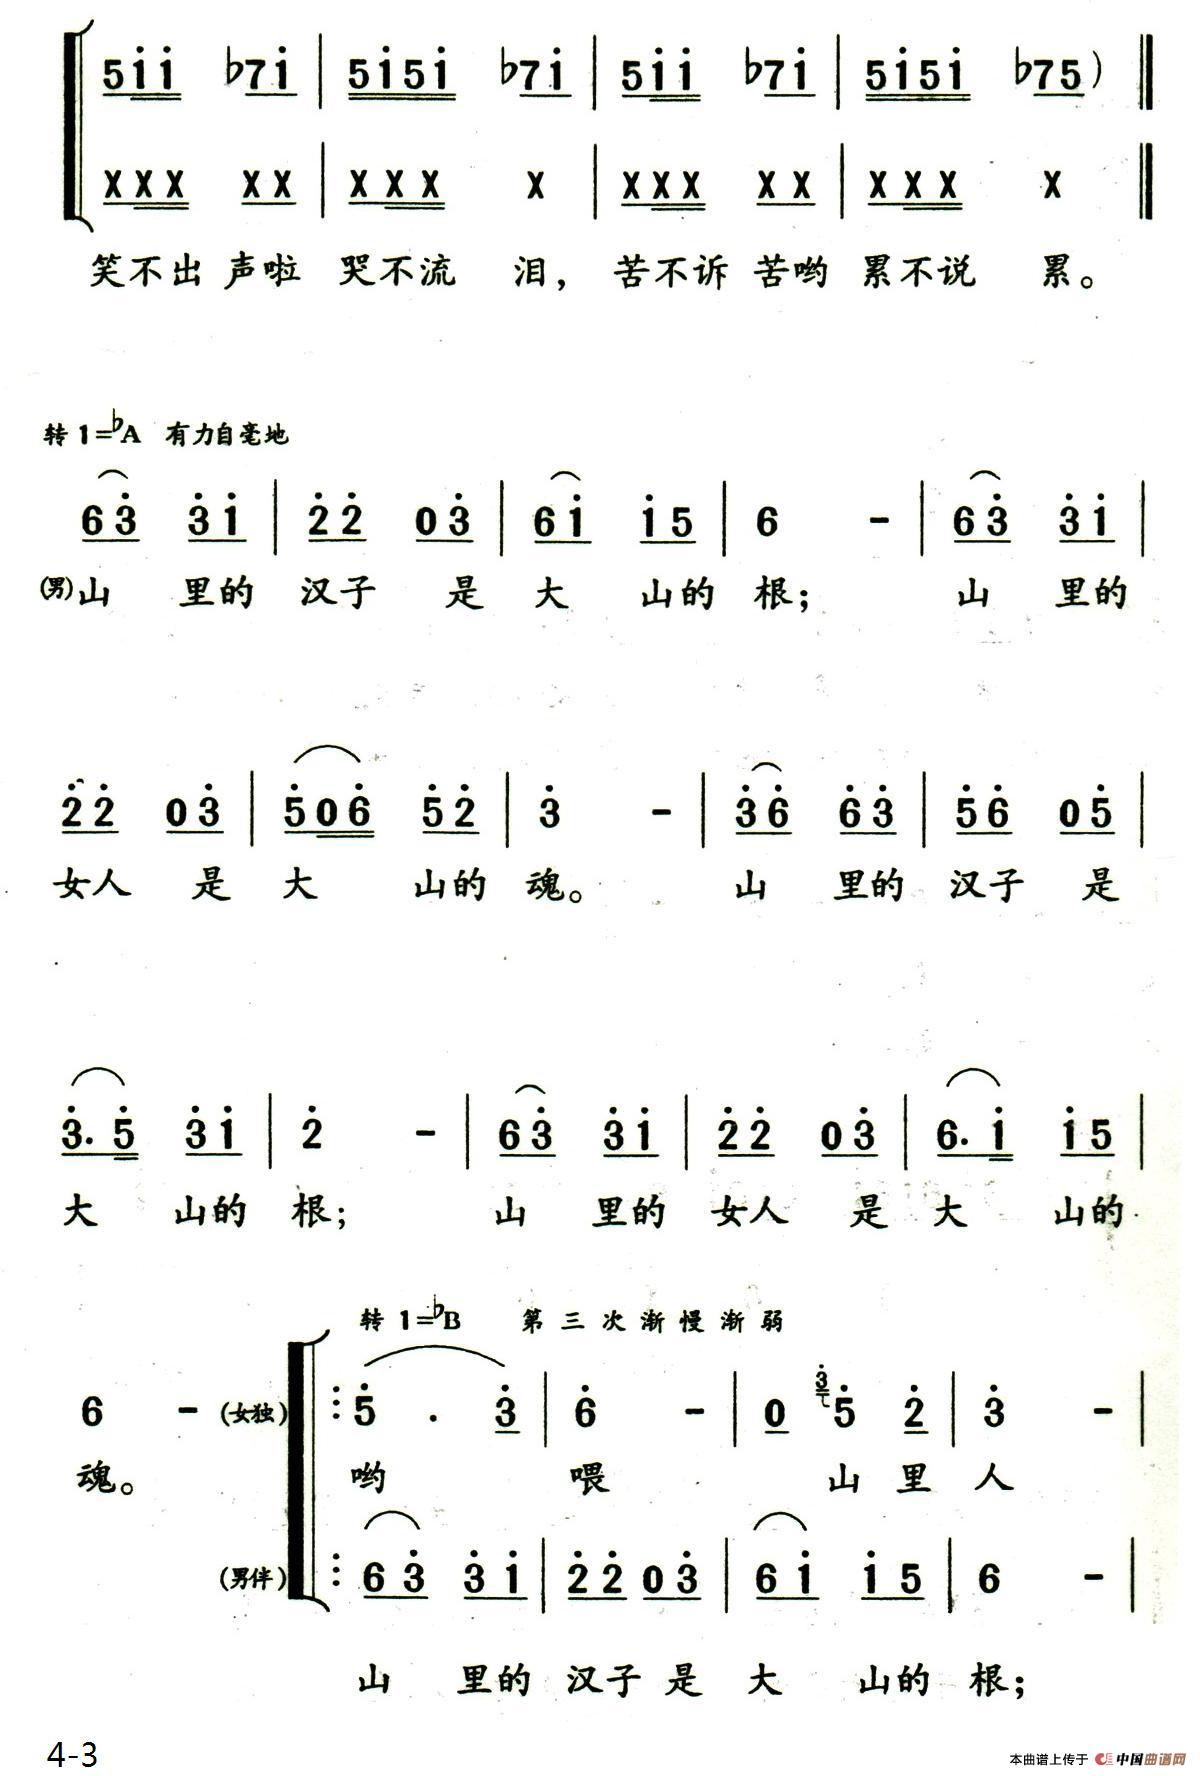 5i̇i̇ ♭7i̇ | 5i̇5i̇ ♭7i̇ | 5i̇i̇ ♭7i̇ | 5i̇5i̇ ♭75) ‖
X X X X X | X X X X | X X X X X | X X X X ‖
笑不出 声啦 哭不流 泪, 苦不诉 苦哟 累不说 累。
转 1=♭A 有力自毫地
6 3̇ 3̇ i̇ | 2̇ 2̇ 0 3̇ | 6 i̇ i̇ 5 | 6 - | 6 3̇ 3̇ i̇ |
(男)山 里的 汉子 是 大 山的 根; 山 里的
2̇ 2̇ 0 3̇ | 5̇ 0 6̇ 5̇ 2̇ | 3̇ - | 3̇ 6̇ 6̇ 3̇ | 5̇ 6̇ 0 5̇ |
女人 是 大 山的 魂。 山 里的 汉子 是
3̇. 5̇ 3̇ i̇ | 2̇ - | 6 3̇ 3̇ i̇ | 2̇ 2̇ 0 3̇ | 6. i̇ i̇ 5 |
大 山的 根; 山 里的 女人 是 大 山的
转 1=♭B 第三次渐慢渐弱
6 - (女独) 5̇ . 3̇ | 6̇ - | 0 3̇ 5̇ 2̇ | 3̇ - |
魂。 哟 喂 山 里 人
(男伴) 6 3̇ 3̇ i̇ | 2̇ 2̇ 0 3̇ | 6 i̇ i̇ 5 | 6 - |
山 里的 汉子 是 大 山的 根;
4-3
本曲谱上传于 中国曲谱网